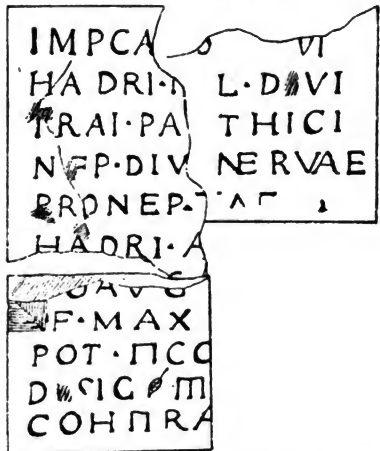 IMPCA VI
HADRI· L·DIVI
TRAI·PA THICI
NEP·DIV NERVAE
PRONEP·
HADRI·A
AVG
·MAX
POT·IICO
D SIG III
COH II RA